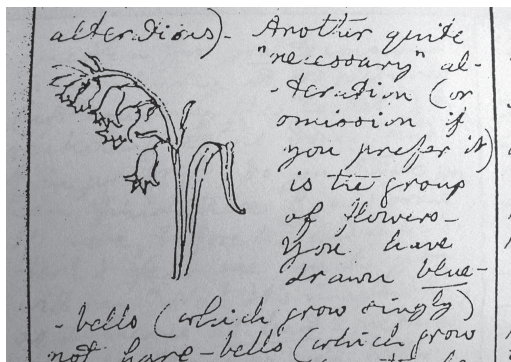 alterations)- Another quite
"necessary" al-
-teration (or
omission if
you prefer it)
is the group
of flowers-
you have
drawn blue-
-bells (which grow singly)
not hare-bells (which grow